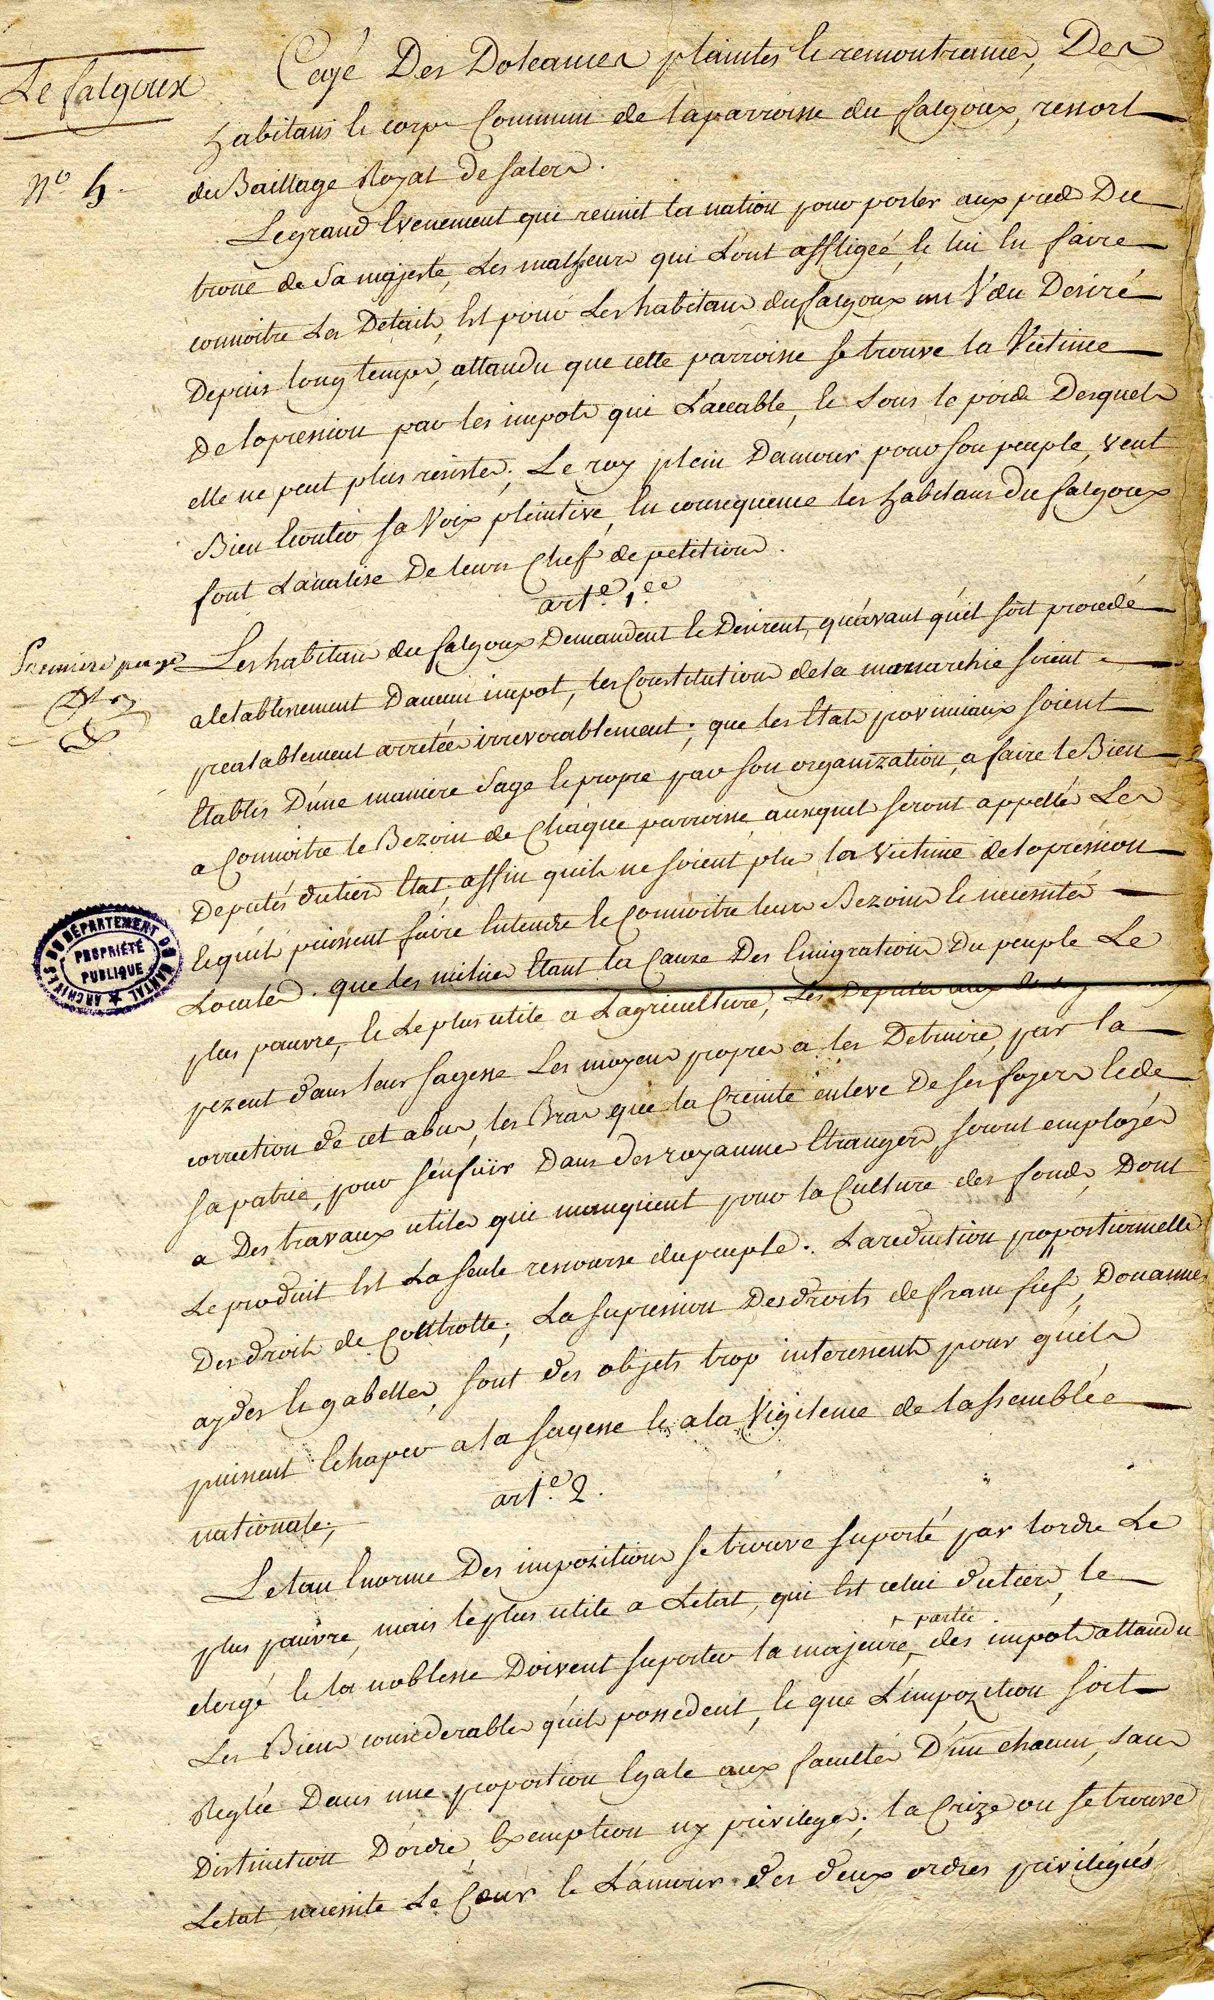 Le falgoux
N° 5.
Cayé Des Doleances plaintes Et remontrances, Des
habitans Et corps Commun de laparroisse du falgoux, ressort
du Baillage Royal de salers.
Legrand Evenement qui reunit la nation pour porter aux pieds Du
trone de Sa majesté, Les malheurs qui L'ont affligée, Et lui En faire
connoitre Les Details, Est pour Les habitans du falgoux un Vœu Desiré
Depuis longtemps, attandu que cette parroisse se trouve la Victime
De lopression par les impots qui L'accable, Et sous le poids Desquels
elle ne peut plus resister; Le roy plein Damour pour son peuple, veut
Bien Ecouter sa Voix plaintive, En consequence les habitans Du falgoux
font Lanalise De leurs Chefs de petitions.
art.e 1.er
Premiere page
Les habitans du falgoux Demandent Et Desirent, qu'avant qu'il soit procedé
aletablissement Daucun impot, les Constitutions de la monarchie soient
prealablement arretées irrevocablement; que les Etats provinciaux soient
Etablis D'une maniere sage Et propre par son organization, a faire le Bien
a Connoitre le Bezoin de Chaque parroisse auxquels seront appellés Les
Deputés du tiers Etat, affin quils ne soient plus la Victime de lopréssion
Et quils puissent faire Entendre Et Connoitre leurs Bezoins Et necessités
Locales. que les milices Etant la Cauze Des Emigrations Du peuple Le
plus pauvre, Et Le plus utile a Lagriculture, Les Deputés aux
pezent dans leur sagesse Les moyens propres a les Detruire, par la
correction de cet abus, les Bras que la Creinte enleve De ses foyers Et de
sa patrie, pour s'enfuir Dans des royaumes Etrangers, seront employés
a Des travaux utiles qui manquent pour la Culture des fonds, Dont
Le produit Est La seule ressourse du peuple. La reduction proportionnelle
Des droits de Controlle; La supression Des droits de franc fief, Douannes
aydes Et gabelles, sont des objets trop interessents pour quils
puissent Echaper a la sagesse Et a la Vigilence de lassemblée
nationale;
art.e 2.
Le tau Enorme Des impozitions se trouve suporté par lordre Le
plus pauvre, mais le plus utile a Letat, qui Est celui du tiers, le
clergé Et la noblesse Doivent suporter la majeure partie des impots attandu
Les Biens considerables qu'ils possedent, Et que L'impozition soit
Reglée Dans une proportion Egale aux facultés D'un chacun, sans
Distinction D'ordre Exemption ny privileges; la Crize ou se trouve
Letat necessite Le Cœur Et L'amour des deux ordres privilegiés
ARCHIVES DU DÉPARTEMENT DU CANTAL
PROPRIÉTÉ
PUBLIQUE